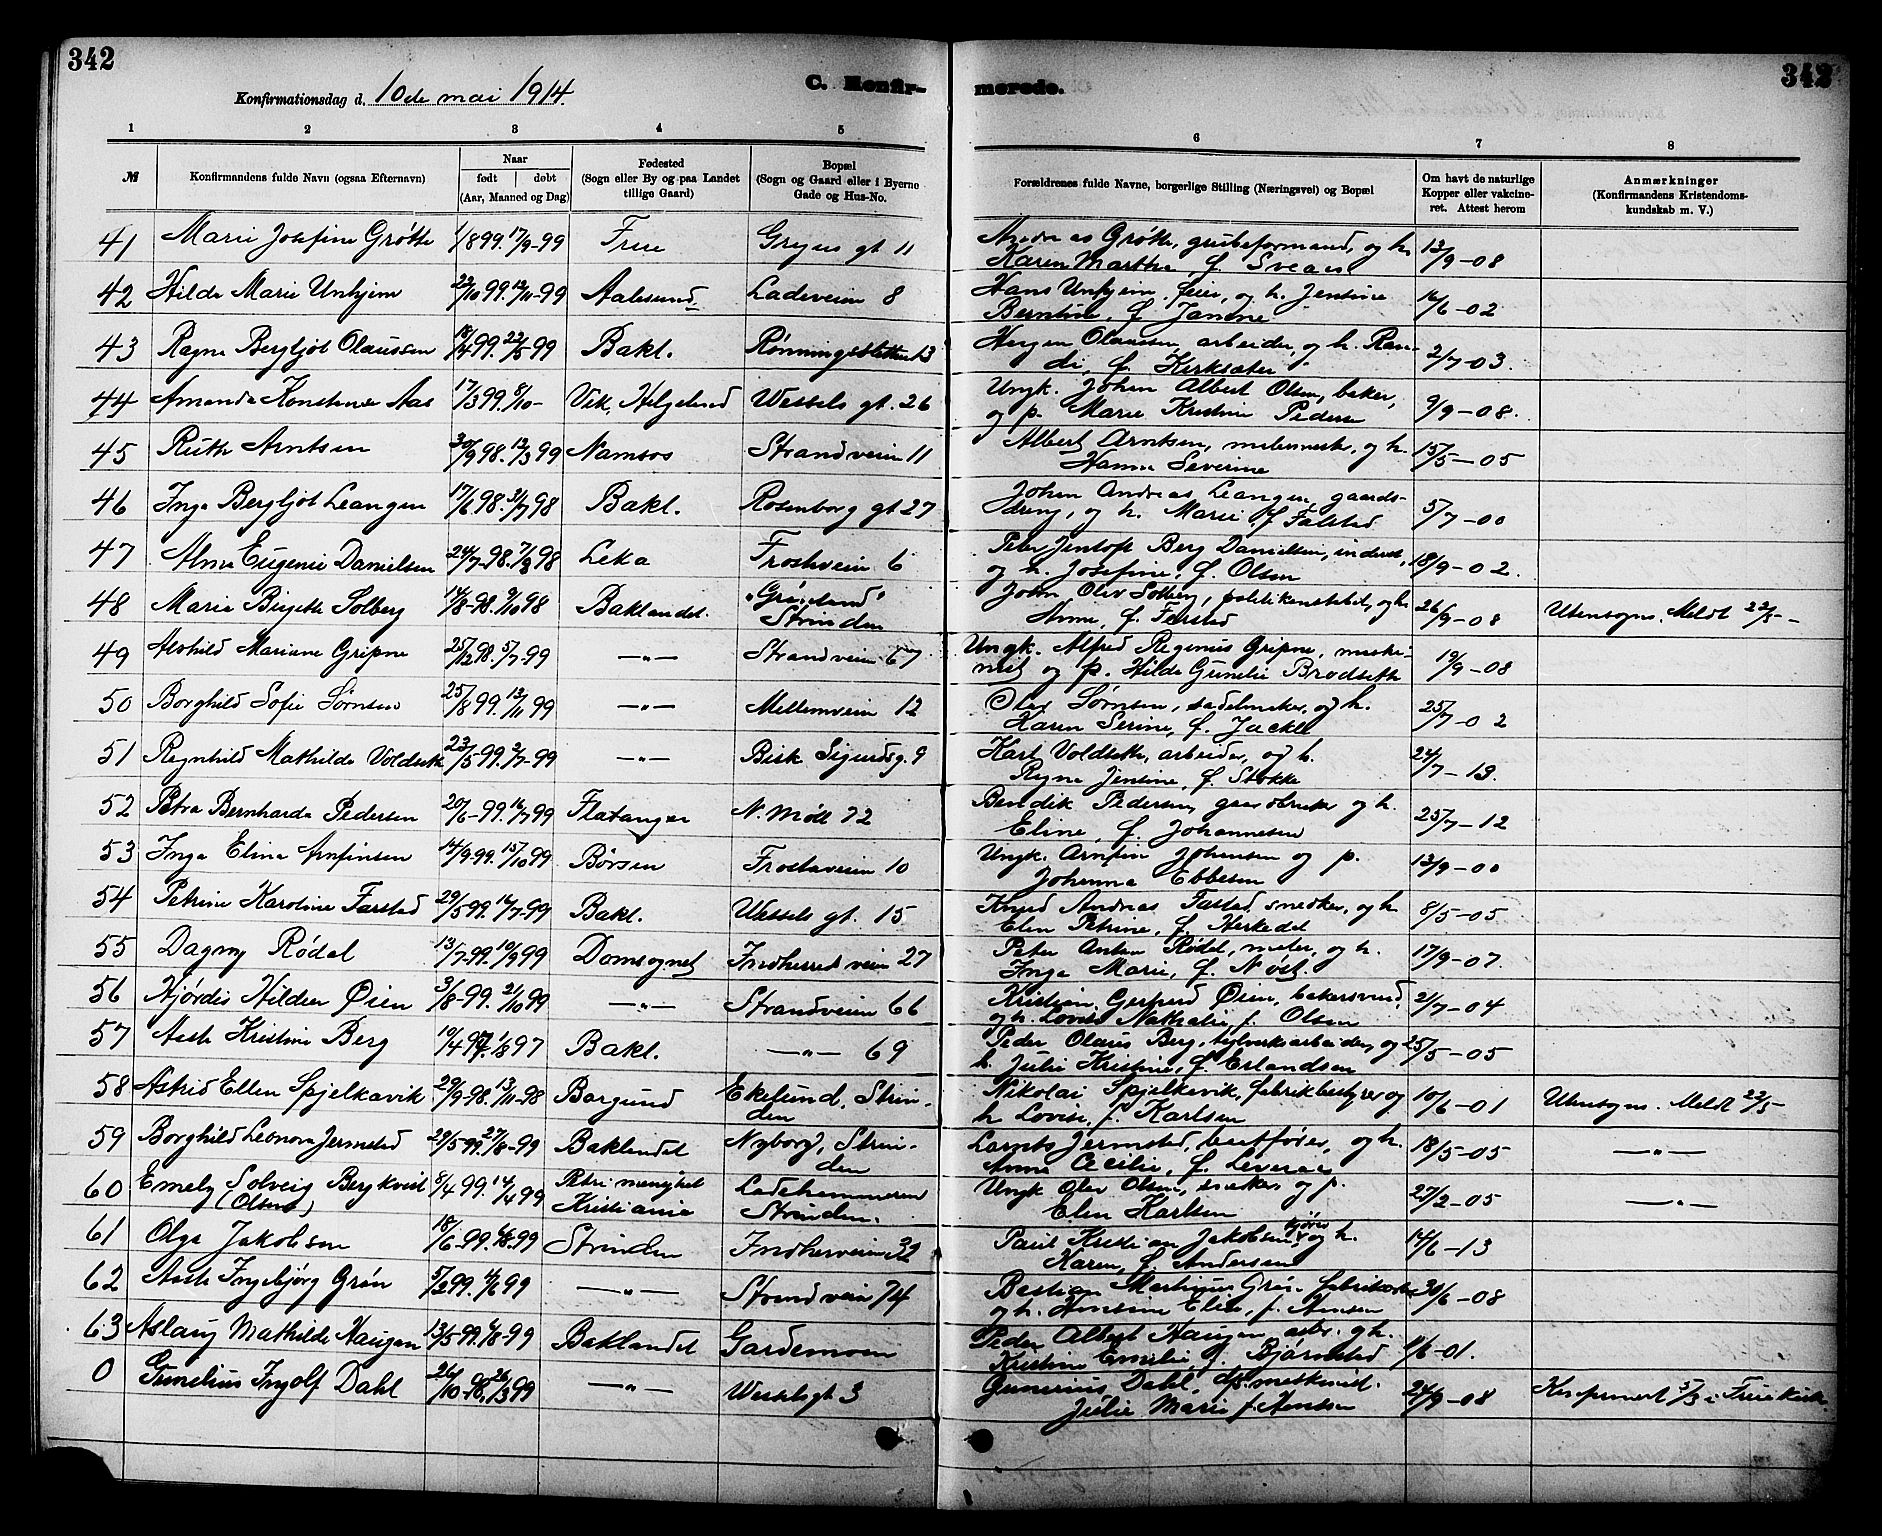 342
342
Konfirmationsdag d. 10de mai 1914.
C. Konfir-
merede.
1 2 3 4 5 6 7 8
№
Konfirmandens fulde Navn (ogsaa Efternavn)
Naar
født døbt
(Aar, Maaned og Dag)
Fødested
(Sogn eller By og paa Landet
tillige Gaard)
Bopæl
(Sogn og Gaard eller i Byerne
Gade og Hus-No.
Forældrenes fulde Navne, borgerlige Stilling (Næringsvei) og Bopæl
Om havt de naturlige
Kopper eller vakcine-
ret. Attest herom
Anmærkninger
(Konfirmandens Kristendoms-
kundskab m. V.)
41 Marie Josefine Grøtte 1/8 99. 17/9-99 Grytes gt 11 Grøtte, grubeformand, og h. 13/9-08
Karen Marthe, f.
42 Hilde Marie Unhjem 22/10 99. 12/11-99 Aalesund Ladeveien 8 Hans Unhjem, feier, og h. Jentine 16/6-02
Berntine, f.
43 Ragna Bergljot Olaussen 18/4 99. 22/5 99 Bakl. Rønningsletten 13 Olaussen, arbeider, og h. Ran- 2/7-03
di, f. Kirksæter
44 Amanda Konstanse Aas 17/3 99. 8/10- Vik, Helgeland Wessels gt. 26 Ungk. Johan Albert Olsen, baker, 9/9-08.
og p. Marie Kristine Pederse
45 Ruth Arntsen 30/9 98. 12/3 99 Namsos Strandveien 11 Albert Arntsen, og h. 15/5-05
Hanna Severine
46 Inga Bergljot Leangen 17/6 98. 31/7 98 Bakl. Rosenborg gt 27 Johan Andreas Leangen, gaards- 5/7-00
dreng, og h. Marie f. Falstad
47 Alma Eugenie Danielsen 24/7-98. 7/8 98 Leka Frostaveien 6 Peter Jentoft Berg Danielsen, 18/9-02.
og h. Josefine, f. Olsen
48 Marie Birgitte Solberg 14/8-98. 9/10 98 Baklandet. "Grønland" John Olav Solberg, politikonstabel, og h. 26/9-08 Utensogns. Meldt 22/5-
Strinden Anne, f. Farstad
49 Alvhild Mariane Gripne 25/12 98. 5/7-99 —"— Strandveien 67 Ungk. Alfred Regenius Gripne, maski- 19/9-08
nist og p. Hilda Gunelie Brodseth
50 Borghild Sofie Sørnsen 25/8 99. 12/11 99 —"— Mellemveien 12 Olav Sørnsen, sadelmaker, og h. 25/7-02
Karen Serine, f.
51 Ragnhild Mathilde Voldseth 23/5-99. 2/7-99 —"— Bisk Sigurdsg. 9 Karl Voldseth, arbeider, og h. 24/7-13.
Ragna Jensine, f. Stokke
52 Petra Bernharda Pedersen 20/6-99. 16/7 99 Flatanger N. Møll 72 Bendik Pedersen, gaardbruker og h. 25/7-12
Eline, f. Johannesen
53 Inga Elina Arnfinsen 14/9-99. 15/10 99 Børsen Frostaveien 10 Ungk. Arnfin Johansen og p. 13/9-00
Johanna Ebbesen
54 Petrine Karoline Farstad 29/5 99. 16/7-99 Bakl. Wessels gt. 15 Knud Andreas Farstad, snedker, og h. 8/5-05
Elen Petrine, f.
55 Dagny Rødal 13/7-99. 10/9 99 Domsognet Indherredsveien 27 Peter Anton Rødal, maler, og h. 17/9-07.
Inga Marie, f. Nøst.
56 Hjørdis Øien 3/8-99. 2/10 99 —"— Strandveien 66 Kristian Øien, bakersvend, 21/7-04
og h. Lovise Nathalie f. Olsen
57 Aasta Kristine Berg 10/4 97. 1/8 97 Bakl. —"— 69 Peder Olaus Berg, teglverksarbeider, og 25/5-05
h. Julie Kristine, f. Erlandsen
58 Astrid Ellen Spjelkavik 29/9-98. 13/11-98 Borgund Ekelund, Strin- Nikolai Spjelkavik, fabrikbestyrer og 10/6-01 Utensogns. Meldt 22/5-
den h Lovise, f. Karlsen
59 Borghild Leonora Jermstad 29/5-99. 27/8-99 Baklandet Nyborg, Strin- Jermstad, og h. 18/5-05 —"—
den Anna Cecilie, f.
60 Emely Solveig Bergkvist 8/4 99. 14/4 99 Petri menighet Ladehammeren Ungk Olav Olsen, snedker og p. 27/2-05 —"—
(Olsen) Kristiania Strinden. Elen Karlsen
61 Olga Jakobsen 18/6-99. 6/8-99 Strinden Indherveien 32 Paul Kristian Jakobsen, kjører og h. 14/6-13
Karen, f. Andersen
62 Aasta Ingebjørg Grøn 5/2 99. 4/6 99 —"— Strandveien 74 Bastian Martinus 30/6-08
63 Aslaug Mathilde Haugan 13/5 99. 6/8-99 Baklandet Gardemoen Peder Albert Haugan, arb. og h. 4/6-01.
Kristine Emilie, f. Bjørnstad
0 Gunelius Ingolf Dahl 26/10-98. 26/3 99 —"— Wesselsgt 3 Gunerius Dahl, 24/9-08 i Frue Kirke.
Julie Marie f. Arntsen